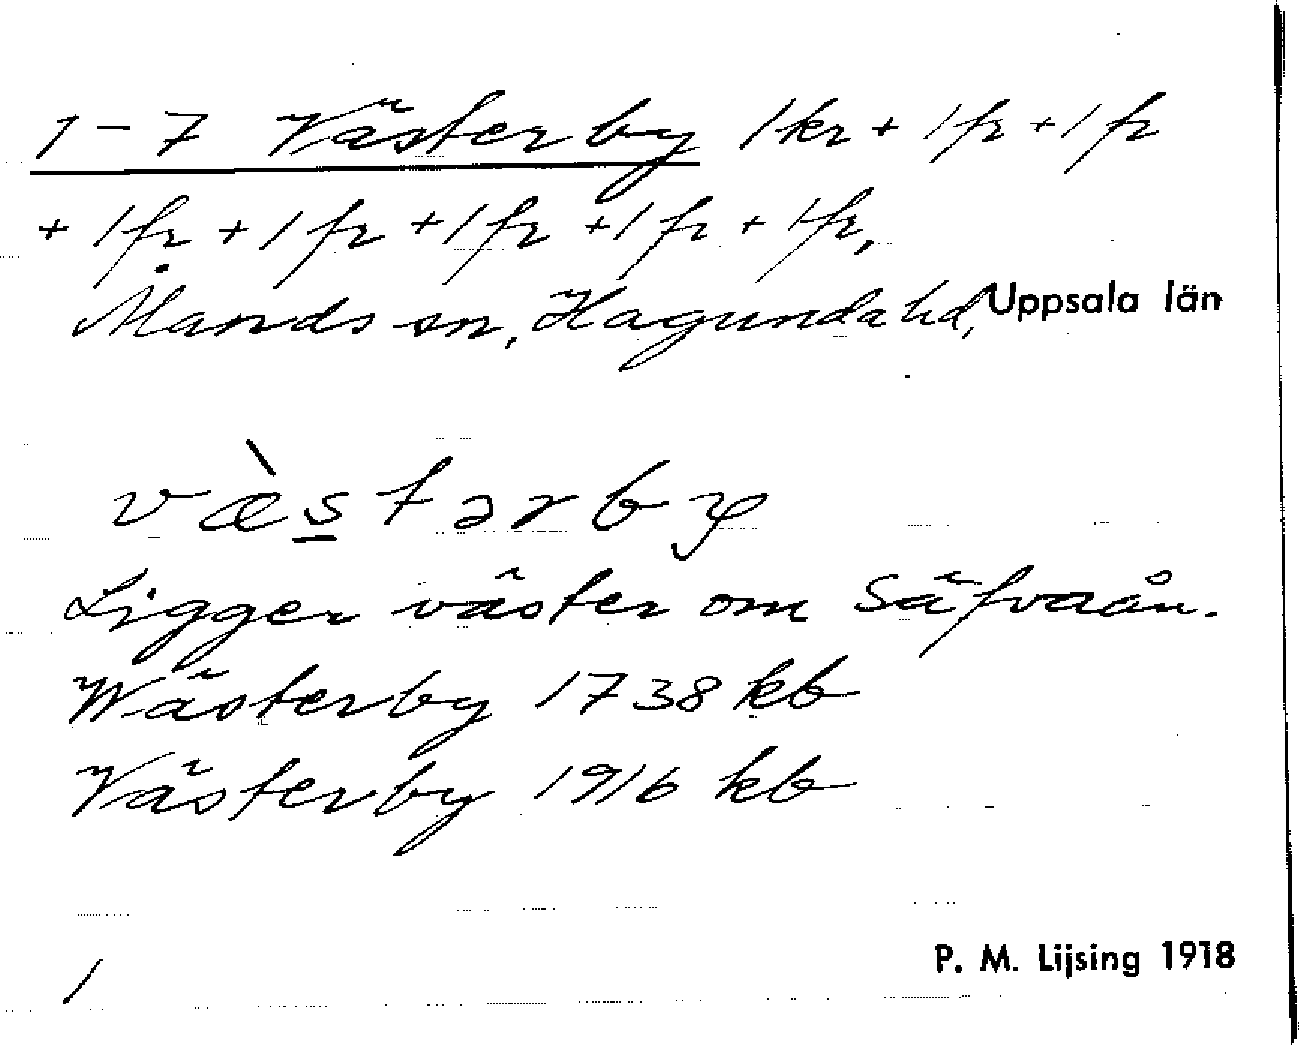 1-7 Västerby 1 kr + 1 fr + 1 fr
+ 1 fr + 1 fr + 1 fr + 1 fr + 1 fr,
Ålands sn, Hagunda hd, Uppsala län
væ̀stərby
Ligger väster om Säfvaån.
Wästerby 1738 kb
Västerby 1916 kb
1
P. M. Lijsing 1918